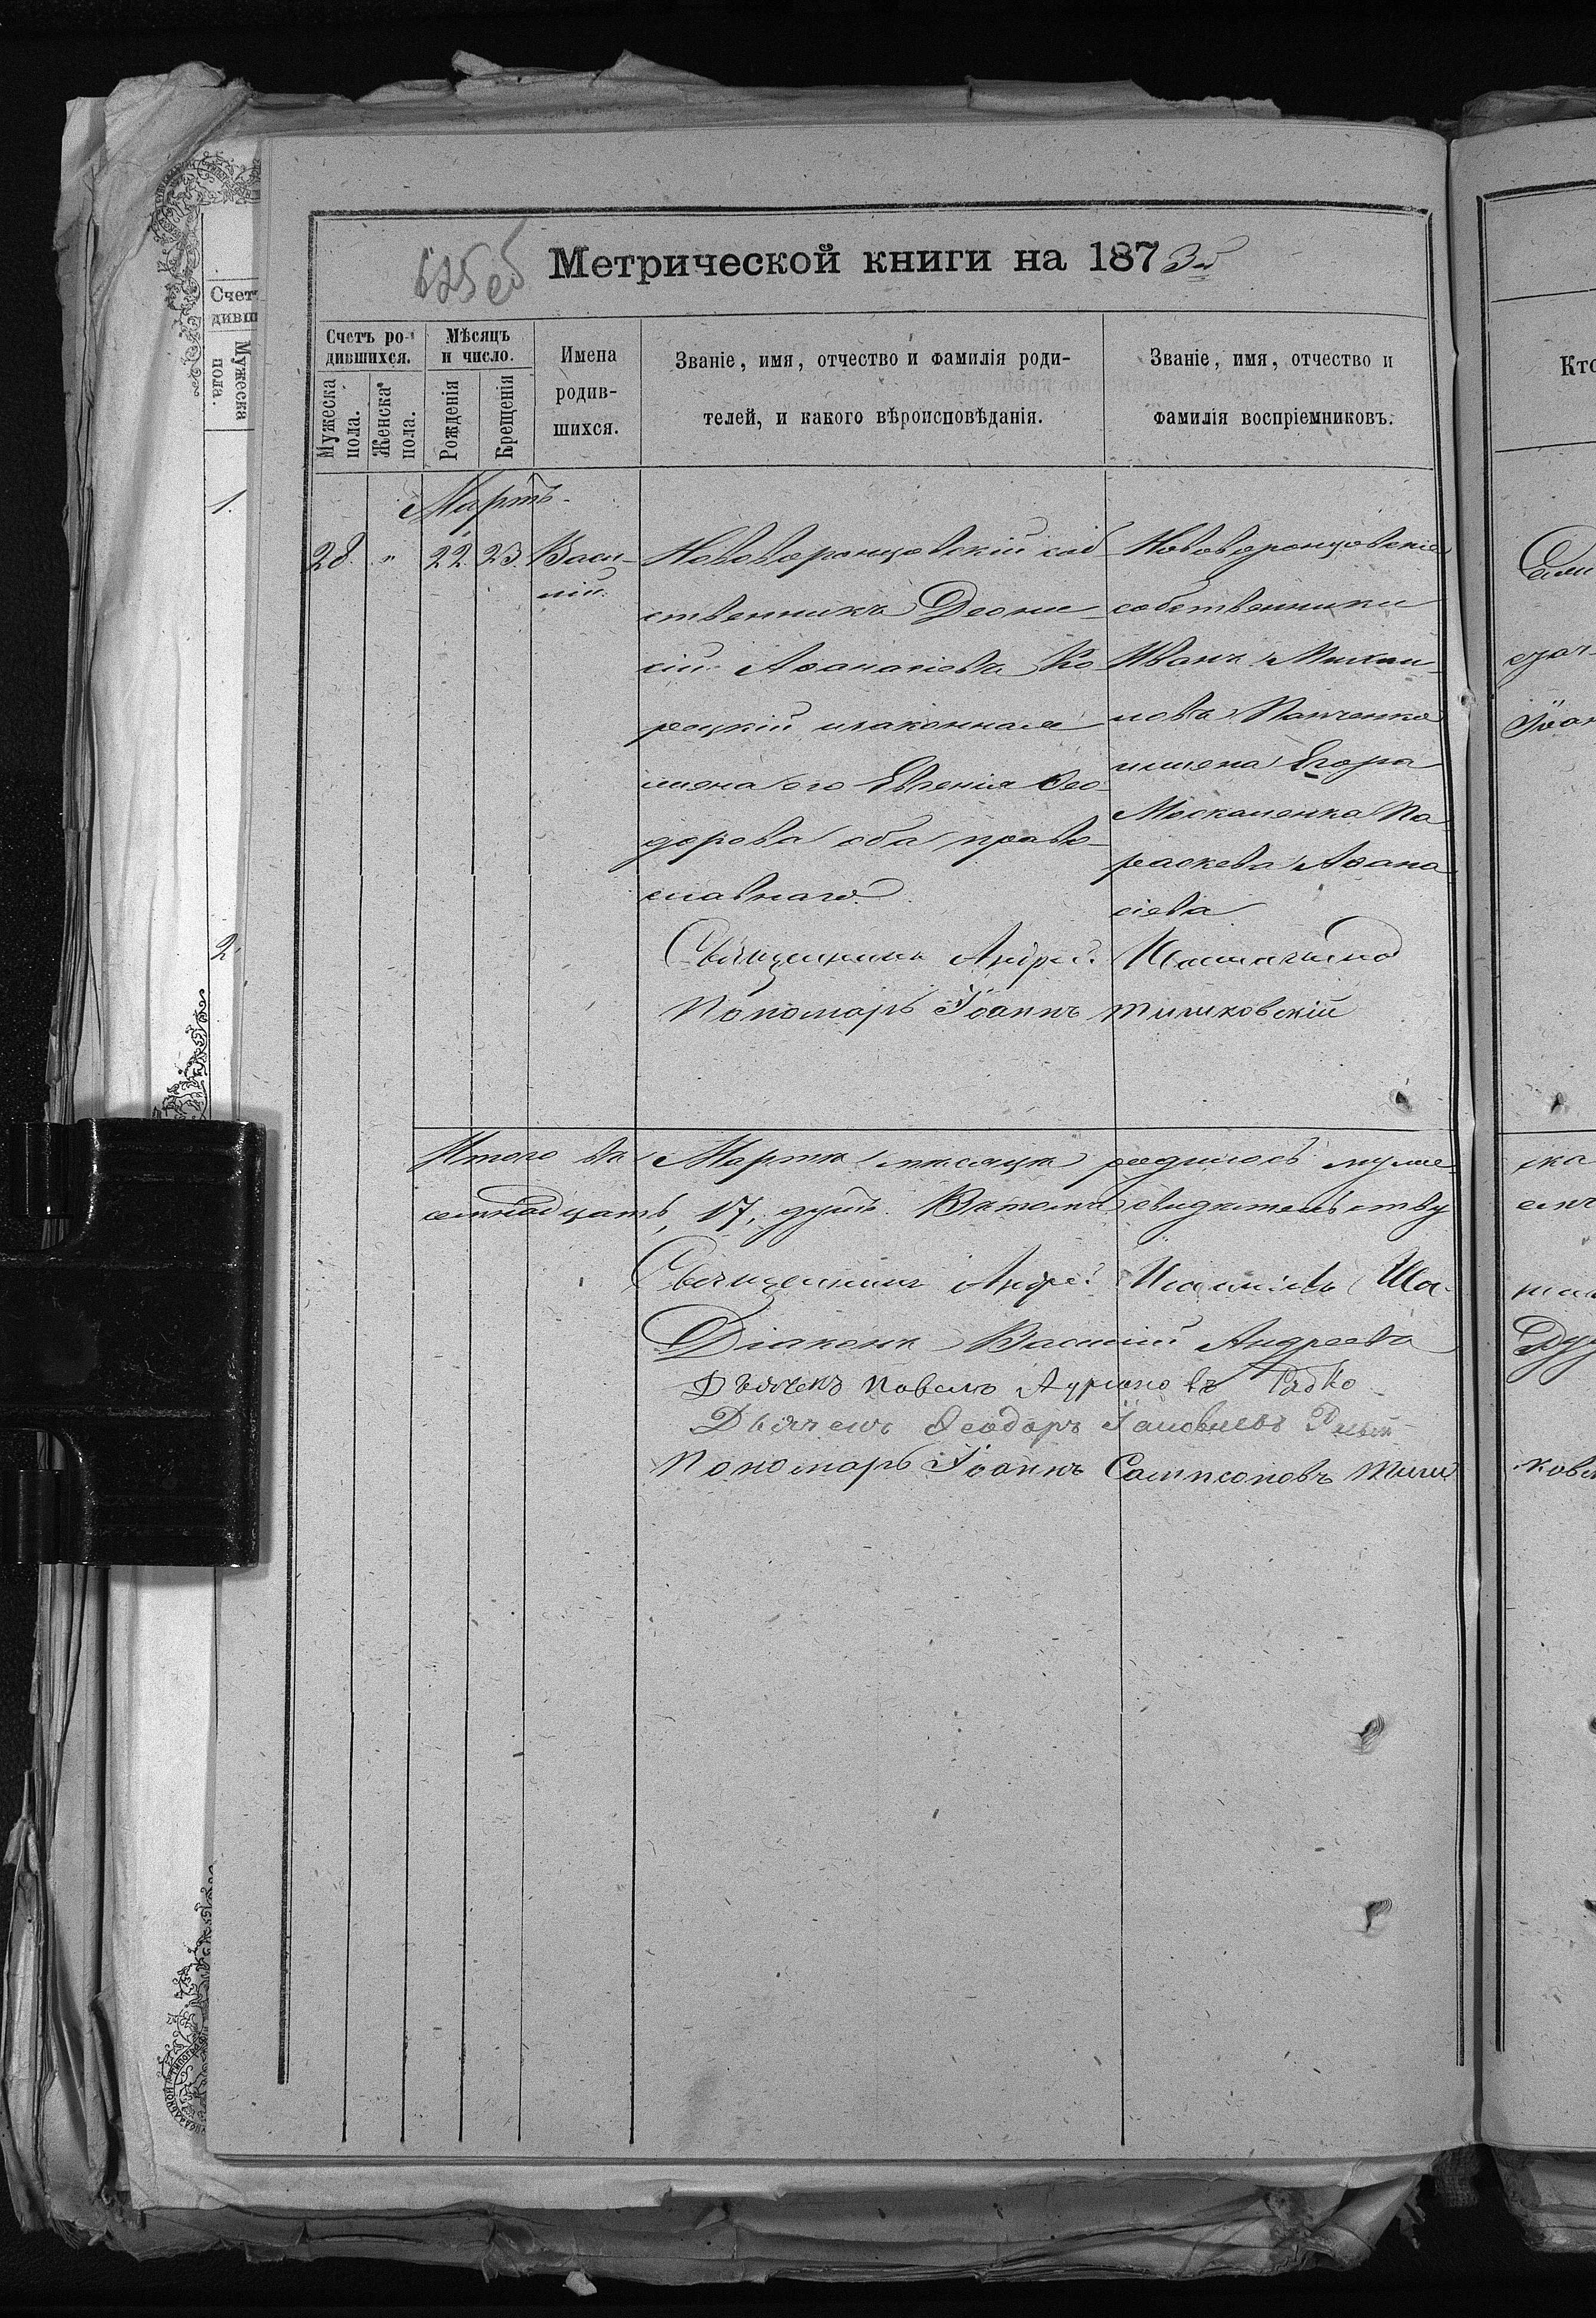 625 об
Метрической книги на 1873й
Счетъ ро-
дившихся.
Мужеска
пола.
Женска
пола.
Мѣсяцъ
и число.
Рожденія
Крещенія
Имена
родив-
шихся.
Званіе, имя, отчество и фамилія роди-
телей, и какого вѣроисповѣданія.
Званіе, имя, отчество и
фамилія воспріемниковъ.
Мартъ
28. " 22. 23. Васи-
лій.
Нововоронцовскій соб
ственникъ Діони
сій Аѳанасіевъ Ко
рецкій изаконная
жена его Евгенія Ѳео
дорова оба право
славнаго.
Нововоронцовскіе
собственники
Иванъ Михаи
ловъ Панченко
ижена Егора
Москаленка Па
раскева Аѳана
сіева
Священникъ Андрей
Пономарь Іоаннъ Тишковскій
Итого въ Мартѣ мѣсяцѣ родилось муже
семнадцать, 17, душъ. Вътомъ свидѣтельству
Священникъ Андрей Ша-
Діаконъ Василій Андреевъ
Дьячекъ Павелъ Радко
Дьячекъ Ѳеодоръ Іаковлевъ
Пономарь Іоаннъ Сампсоновъ Тиш
Счет
дивш
Мужеска
пола.
1.
2.
Кто
ска
ков